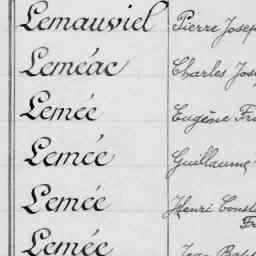 Lemauviel Pierre Josep
Leméac Charles Jos
Lemée Eugène Fr
Lemée Guillaume
Lemée Henri Const
Fr
Lemée Jean Bapt